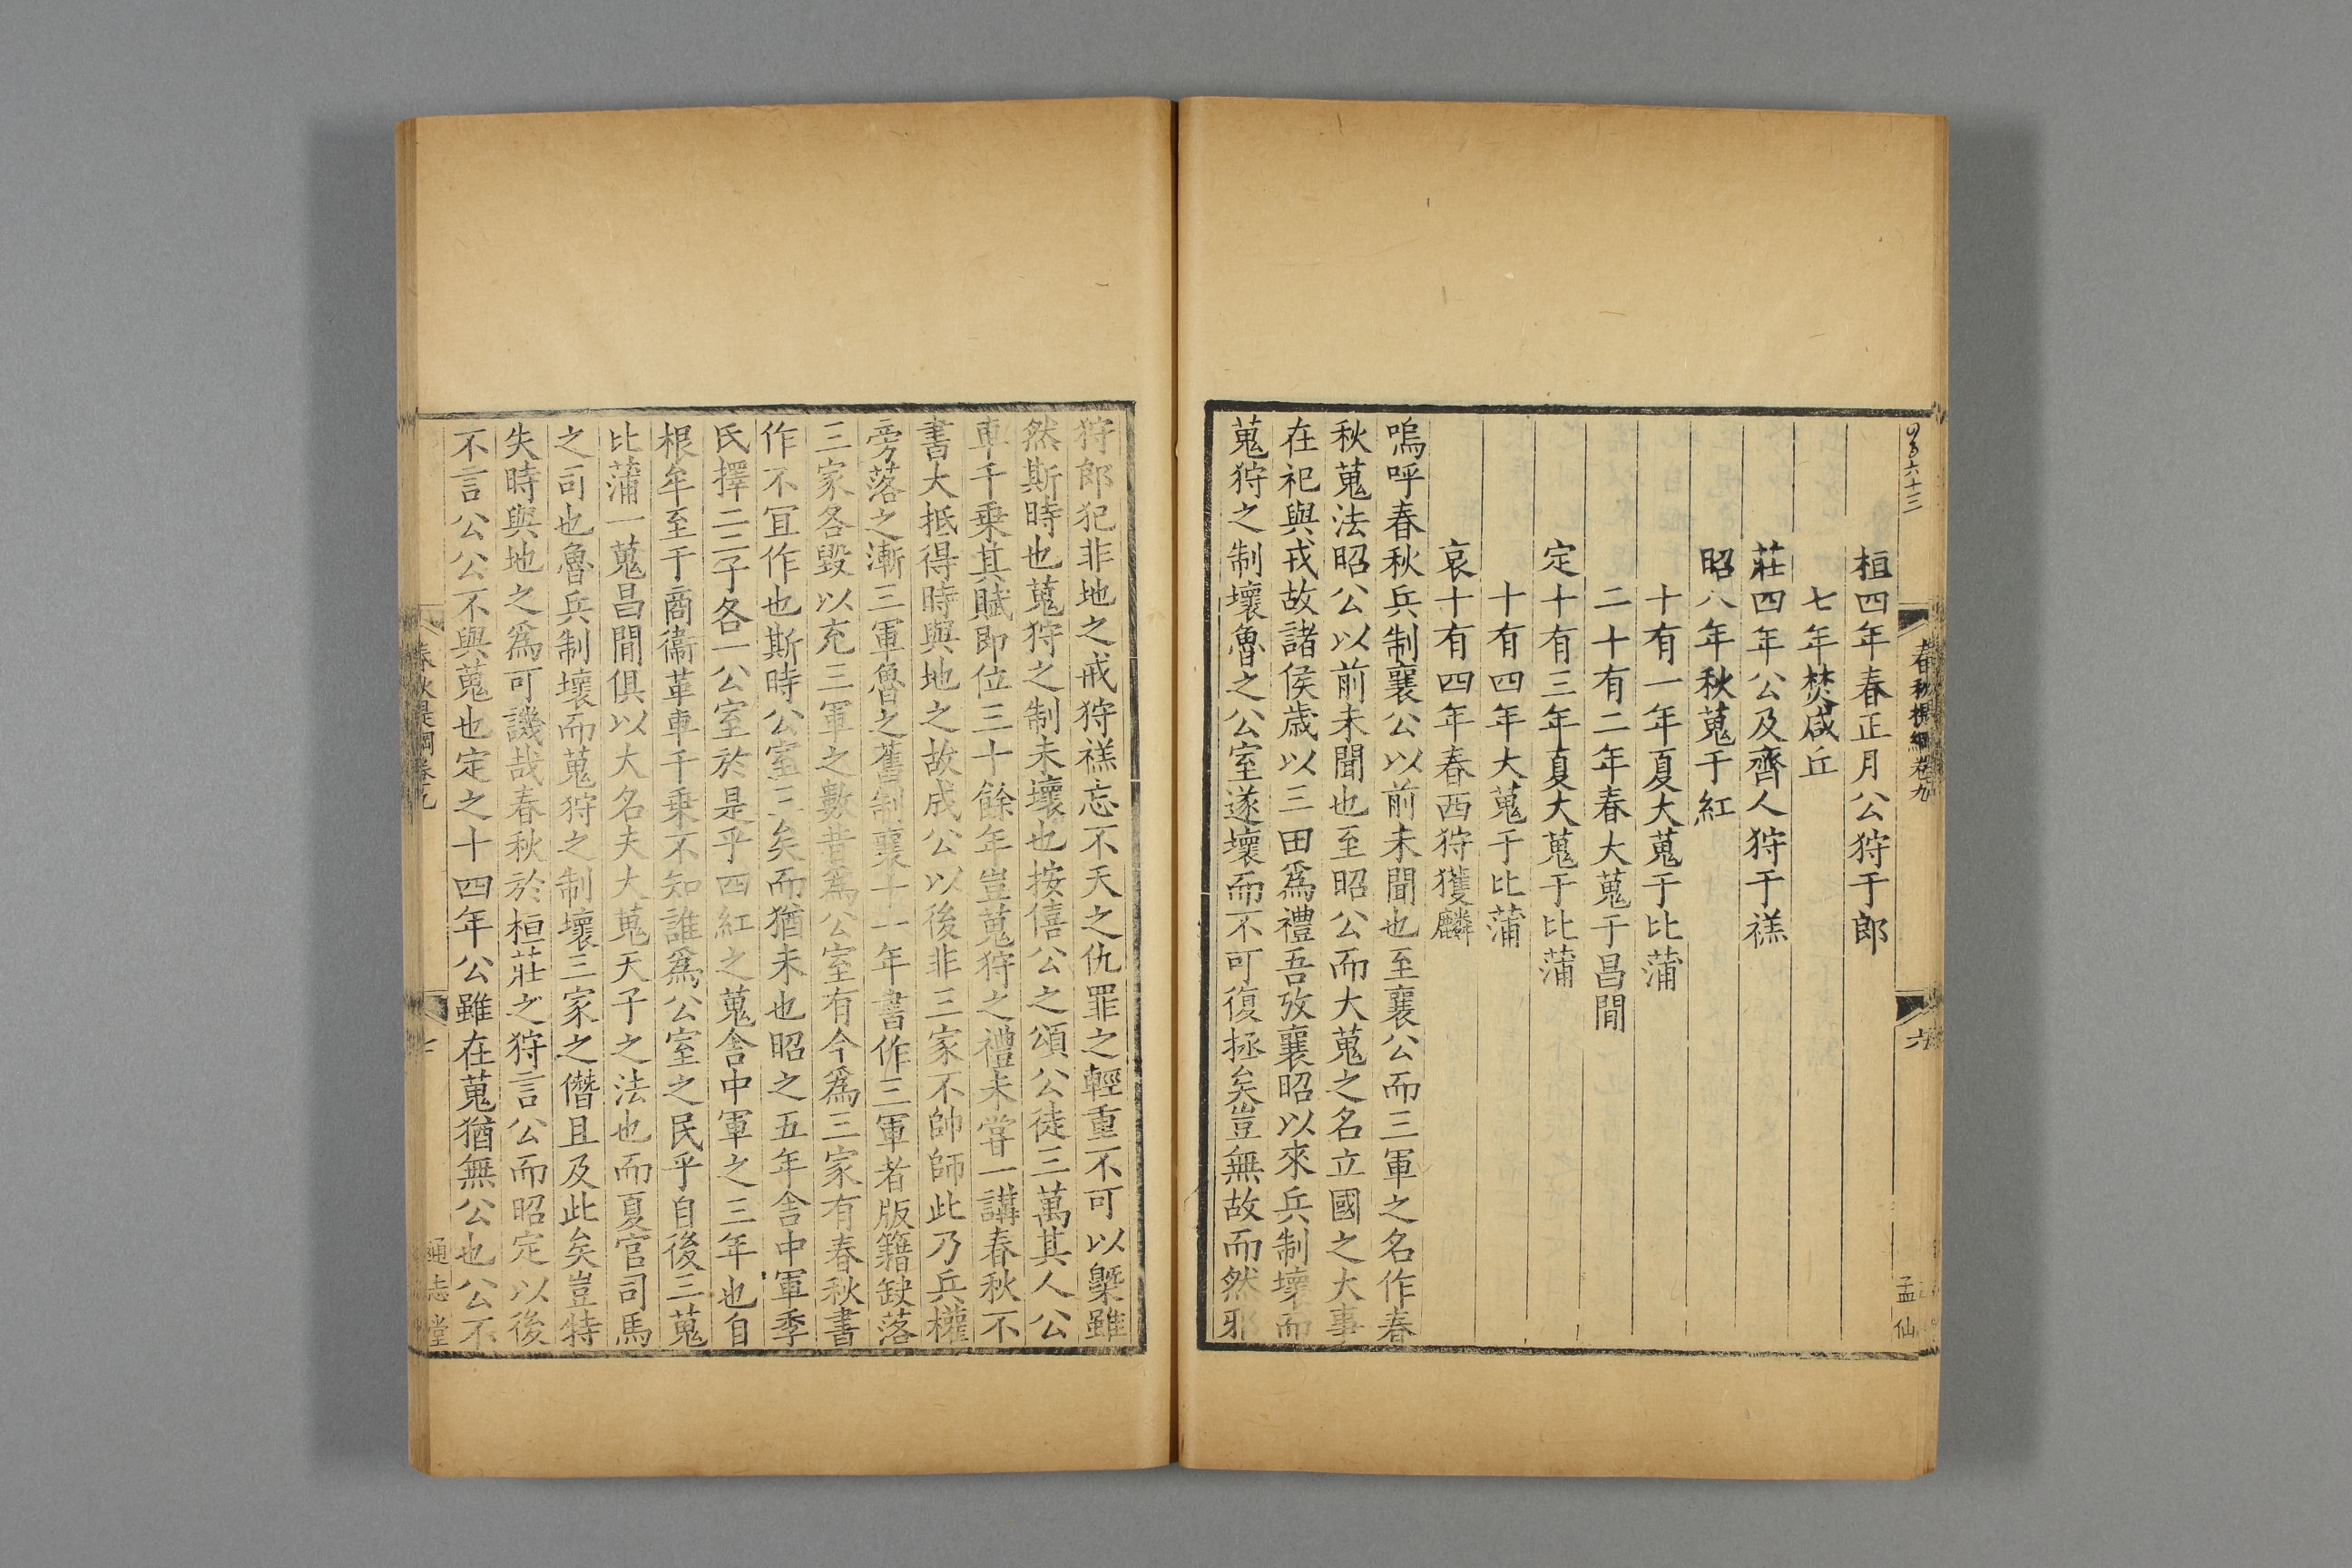 六十三
春秋提綱卷九
六
孟仙
桓四年春正月公狩于郎
七年焚咸丘
莊四年公及齊人狩于禚
昭八年秋蒐于紅
十有一年夏大蒐于比蒲
二十有二年春大蒐于昌間
定十有三年夏大蒐于比蒲
十有四年大蒐于比蒲
哀十有四年春西狩獲麟
嗚呼春秋兵制襄公以前未聞也至襄公而三軍之名作春
秋蒐法昭公以前未聞也至昭公而大蒐之名立國之大事
在祀與戎故諸侯歲以三田爲禮吾攷襄昭以來兵制壞而
蒐狩之制壞魯之公室遂壞而不可復拯矣豈無故而然邪
狩郎犯非地之戒狩禚忘不天之仇罪之輕重不可以槩雖
然斯時也蒐狩之制未壞也按僖公之頌公徒三萬其人公
車千乗其賦即位三十餘年豈蒐狩之禮未嘗一講春秋不
書大抵得時與地之故成公以後非三家不帥師此乃兵權
旁落之漸三軍魯之舊制襄十一年書作三軍者版籍缺落
三家各毀以充三軍之數昔爲公室有今爲三家有春秋書
作不冝作也斯時公室三矣而猶未也昭之五年舎中軍季
氏擇二二子各一公室於是乎四紅之蒐舎中軍之三年也自
根牟至于商衞革車千乗不知誰爲公室之民乎自後三蒐
比蒲一蒐昌間俱以大名夫大蒐天子之法也而夏官司馬
之司也魯兵制壞而蒐狩之制壞三家之僭且及此矣豈特
失時與地之爲可譏哉春秋於桓莊之狩言公而昭定以後
不言公公不與蒐也定之十四年公雖在蒐猶無公也公不
春秋提綱卷九
七
通志堂